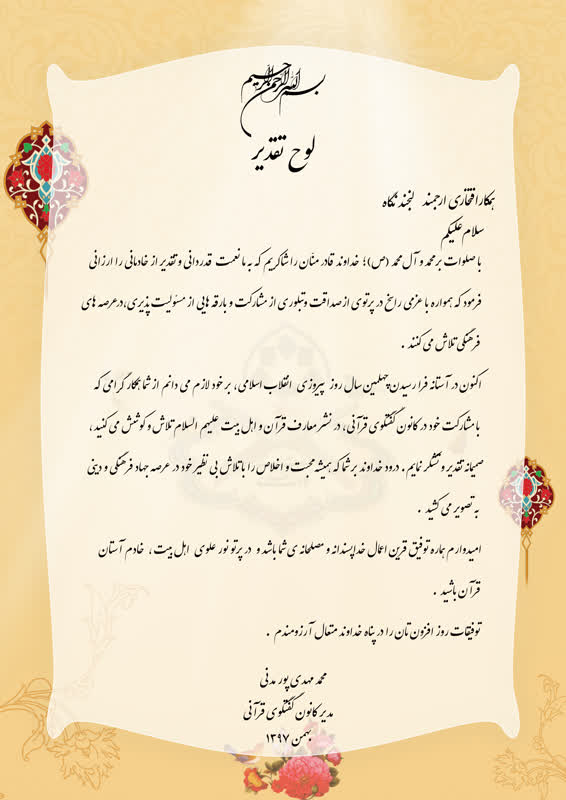 بسم الله الرحمن الرحیم
لوح تقدیر
همکار افتخاری ارجمند لبخند نگاه
سلام علیکم
با صلوات بر محمد و آل محمد (ص)؛ خداوند قادر منّان را شاکریم که به ما نعمت قدردانی و تقدیر از خادمانی را ارزانی
فرمود که همواره با عزمی راسخ در پرتوی از صداقت و تبلوری از مشارکت و بارقه هایی از مسئولیت پذیری، در عرصه های
فرهنگی تلاش می کنند .
اکنون در آستانه فرا رسیدن چهلمین سال روز پیروزی انقلاب اسلامی، بر خود لازم می دانم از شما همکار گرامی که
با مشارکت خود در کانون گفتگوی قرآنی، در نشر معارف قرآن و اهل بیت علیهم السلام تلاش و کوشش می کنید،
صمیمانه تقدیر و تشکر نمایم . درود خداوند بر شما که همیشه محبت و اخلاص را با تلاش بی نظیر خود در عرصه جهاد فرهنگی و دینی
به تصویر می کشید .
امیدوارم هماره توفیق قرین اعمال خداپسندانه و مصلحانه ی شما باشد و در پرتو نور علوی اهل بیت ، خادم آستان
قرآن باشید .
توفیقات روز افزون تان را در پناه خداوند متعال آرزومندم .
محمد مهدی پور مدنی
مدیر کانون گفتگوی قرآنی
بهمن ۱۳۹۷